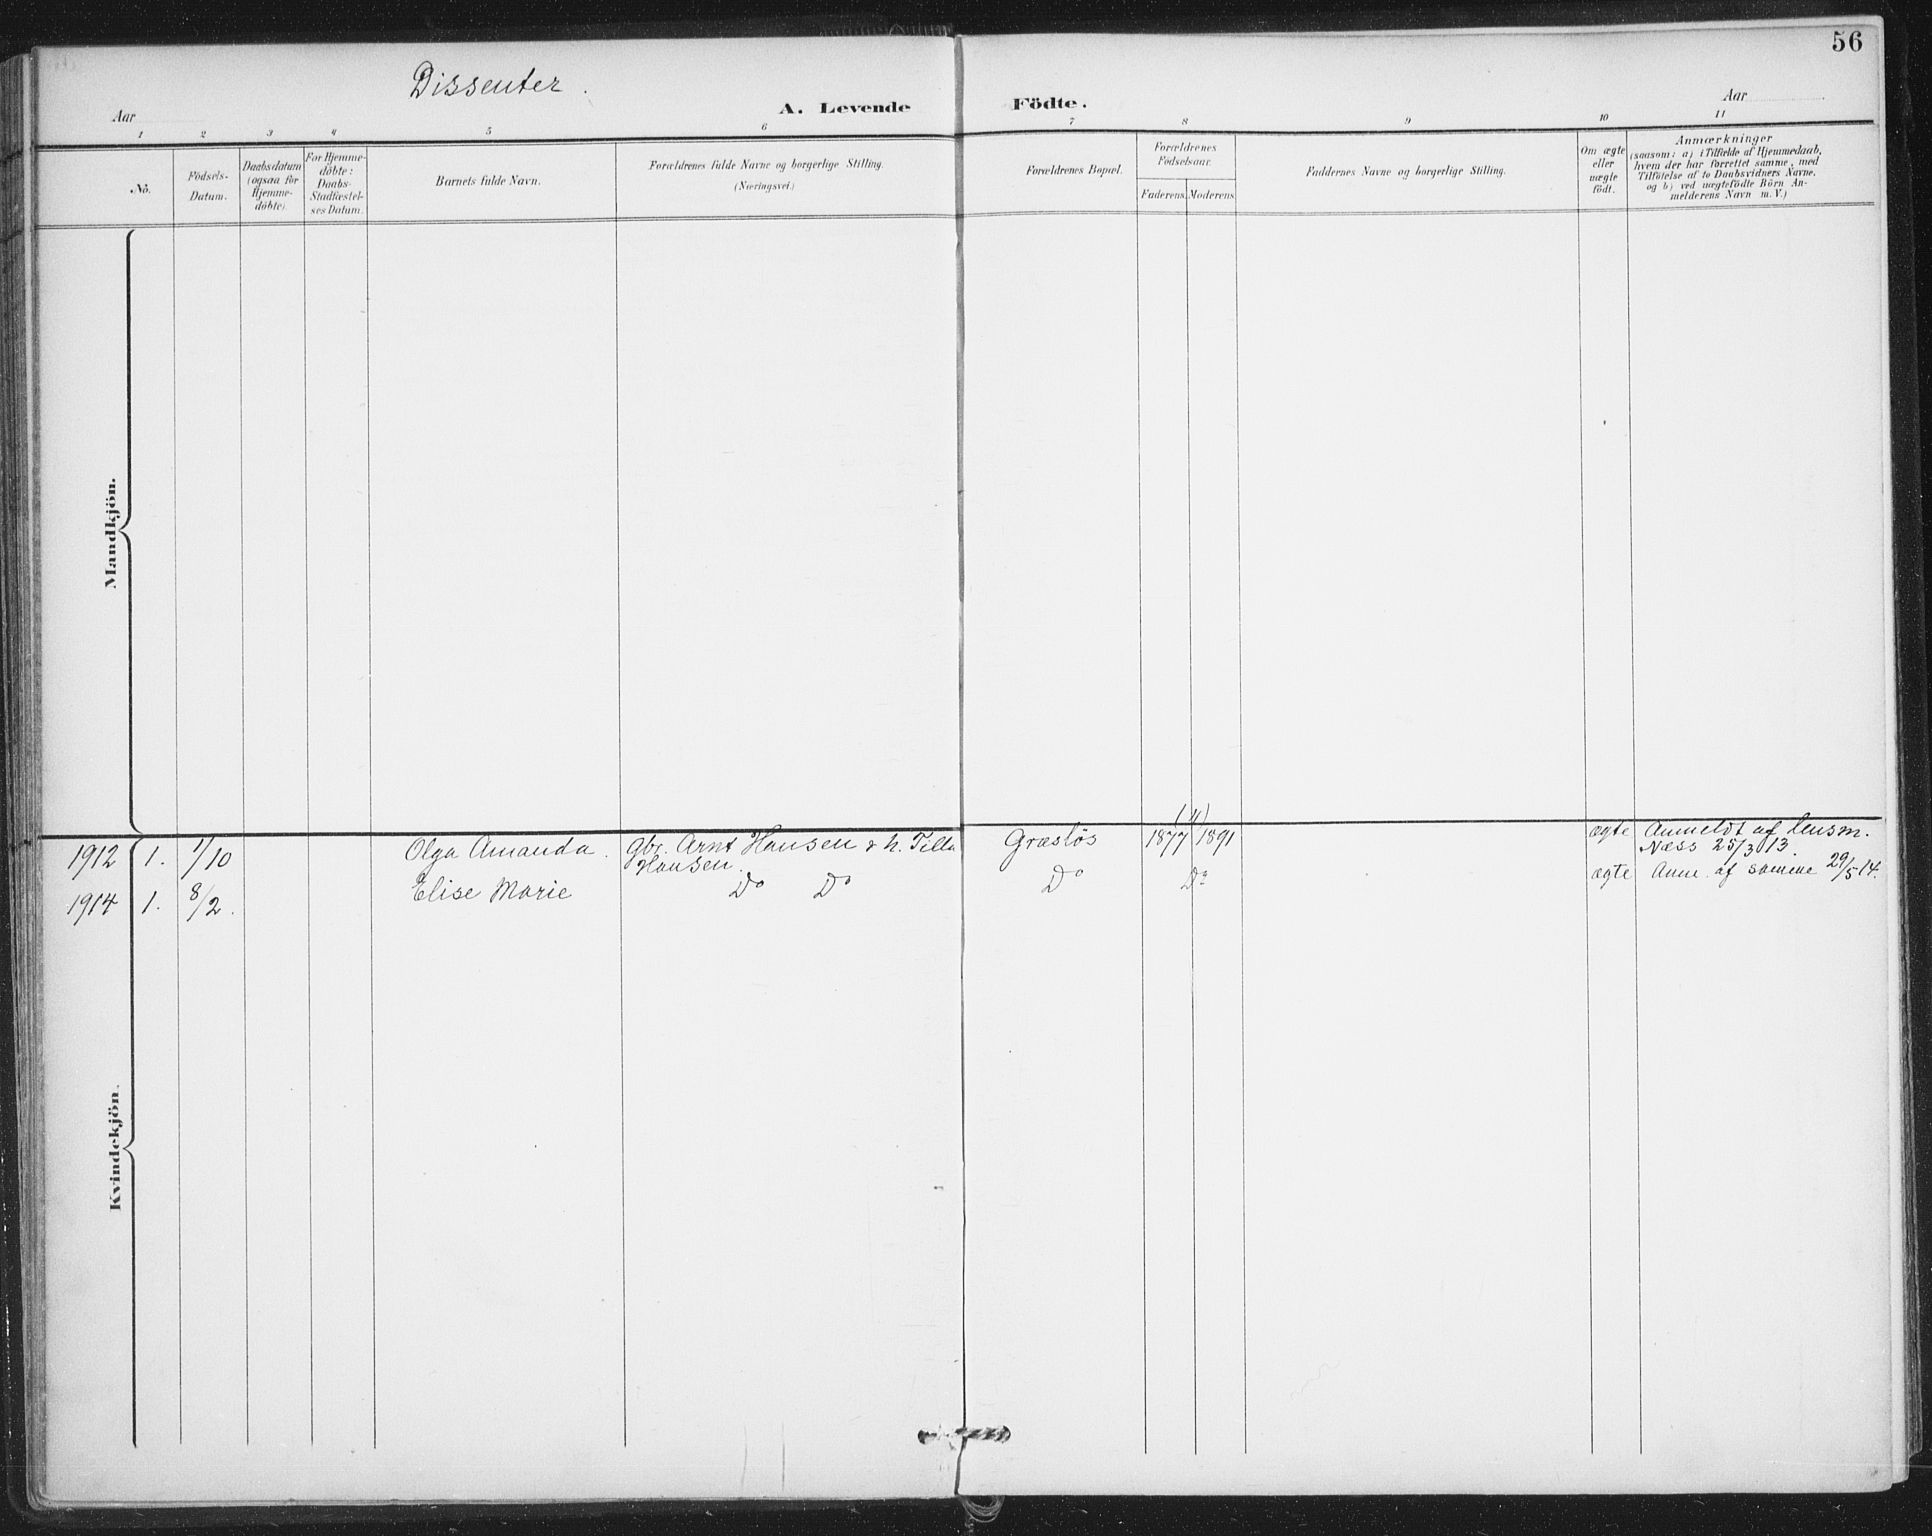 56
Dissenter.
Aar
A. Levende Födte.
Aar
1 2 3 4 5 6 7 8 9 10 11
No.
Födsels-
Datum.
Daabsdatum
(ogsaa for
Hjemme-
döbte).
For Hjemme-
döbte:
Daabs-
Stadfæstel-
ses Datum.
Barnets fulde Navn.
Forældrenes fulde Navne og borgerlige Stilling.
(Næringsvei.)
Forældrenes Bopæl.
Forældrenes
Födselsaar.
Faderens. Moderens
Faddernes Navne og borgerlige Stilling.
Om ægte
eller
uægte
födt.
Anmærkninger
(saasom: a) i Tilfælde af Hjemmedaab,
hvem der har forrettet samme, med
Tilföielse af to Daabsvidners Navne,
og b) ved uægtefödte Börn An-
melderens Navn m. V.)
Mandkjön.
1912 1. 1/10 Olga Amanda. gbr. Arnt Hansen & h. Tilla
Hansen. Græsløs 1877 1891 ægte Anmeldt af lensm.
Næss 25/3 13.
1914 1. 8/2. Elise Marie Do Do Do Do ægte Anm. af samme 29/5 14.
Kvindekjön.